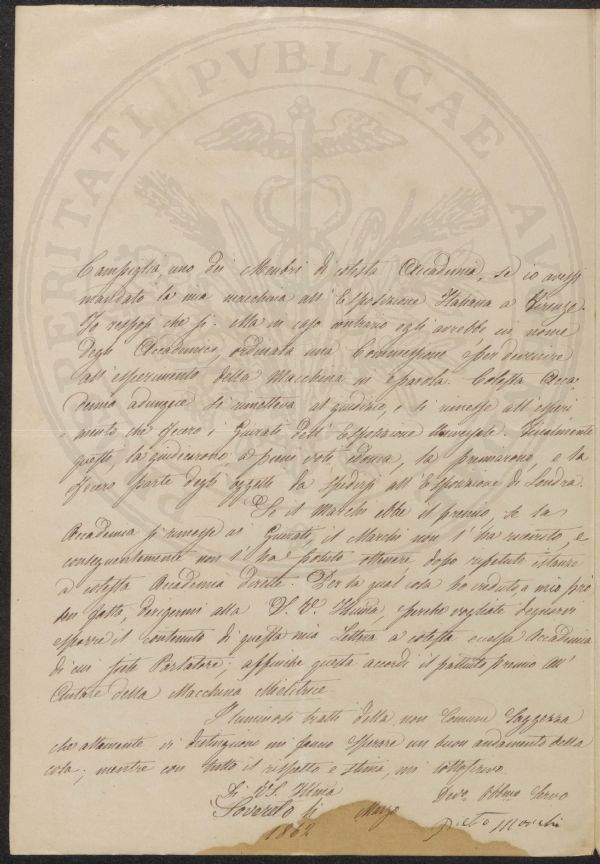 PROSPERITATI PUBLICAE AU
Campiglia, uno dei Membri di cotesta Accademia, se io avessi
mandato la mia macchina all'Esposizione Italiana a Firenze.
Io risposi che si. Ma in caso contrario egli avrebbe in nome
degli Accademici, ordinata una Commessione per devenire
all'esperimento della Macchina in parola. Cotesta Acca
demia adunque si rimetteva al giudizio, e si rimesse all'esperi
mento che fecero i Giurati dell'Esposizione Universale. Finalmente
questi, la giudicarono, a pieni voti, idonea, la premiarono, e la
fecero parte degli oggetti da spedirsi all'Esposizione di Londra.
Se il Marchi ebbe il premio, se la
Accademia si rimesse ai Giurati, il Marchi non l'ha ricevuto, e
conseguentemente non l'ha potuto ottenere, dopo ripetute istanze
a cotesta Accademia dirette. Per la qual cosa ho creduto a mio pro
den fatto, derigermi alla S. V. Illma, perche vogliate degnarvi
esporre il contenuto di questa mia Lettera a cotesta eccelsa Accademia
di cui siete Portatore; affinche questa accordi il pattuito premio all'
Autore della Macchina Mietitrice
I luminosi tratti della non Comune Saggezza
che altamente vi distinguono mi fanno sperare un buon andamento della
cosa; mentre con tutto il rispetto e stima, mi sottoscrivo.
Di V. S. Illma Devo Obblmo Servo
li Marzo Pietro Marchi
1862